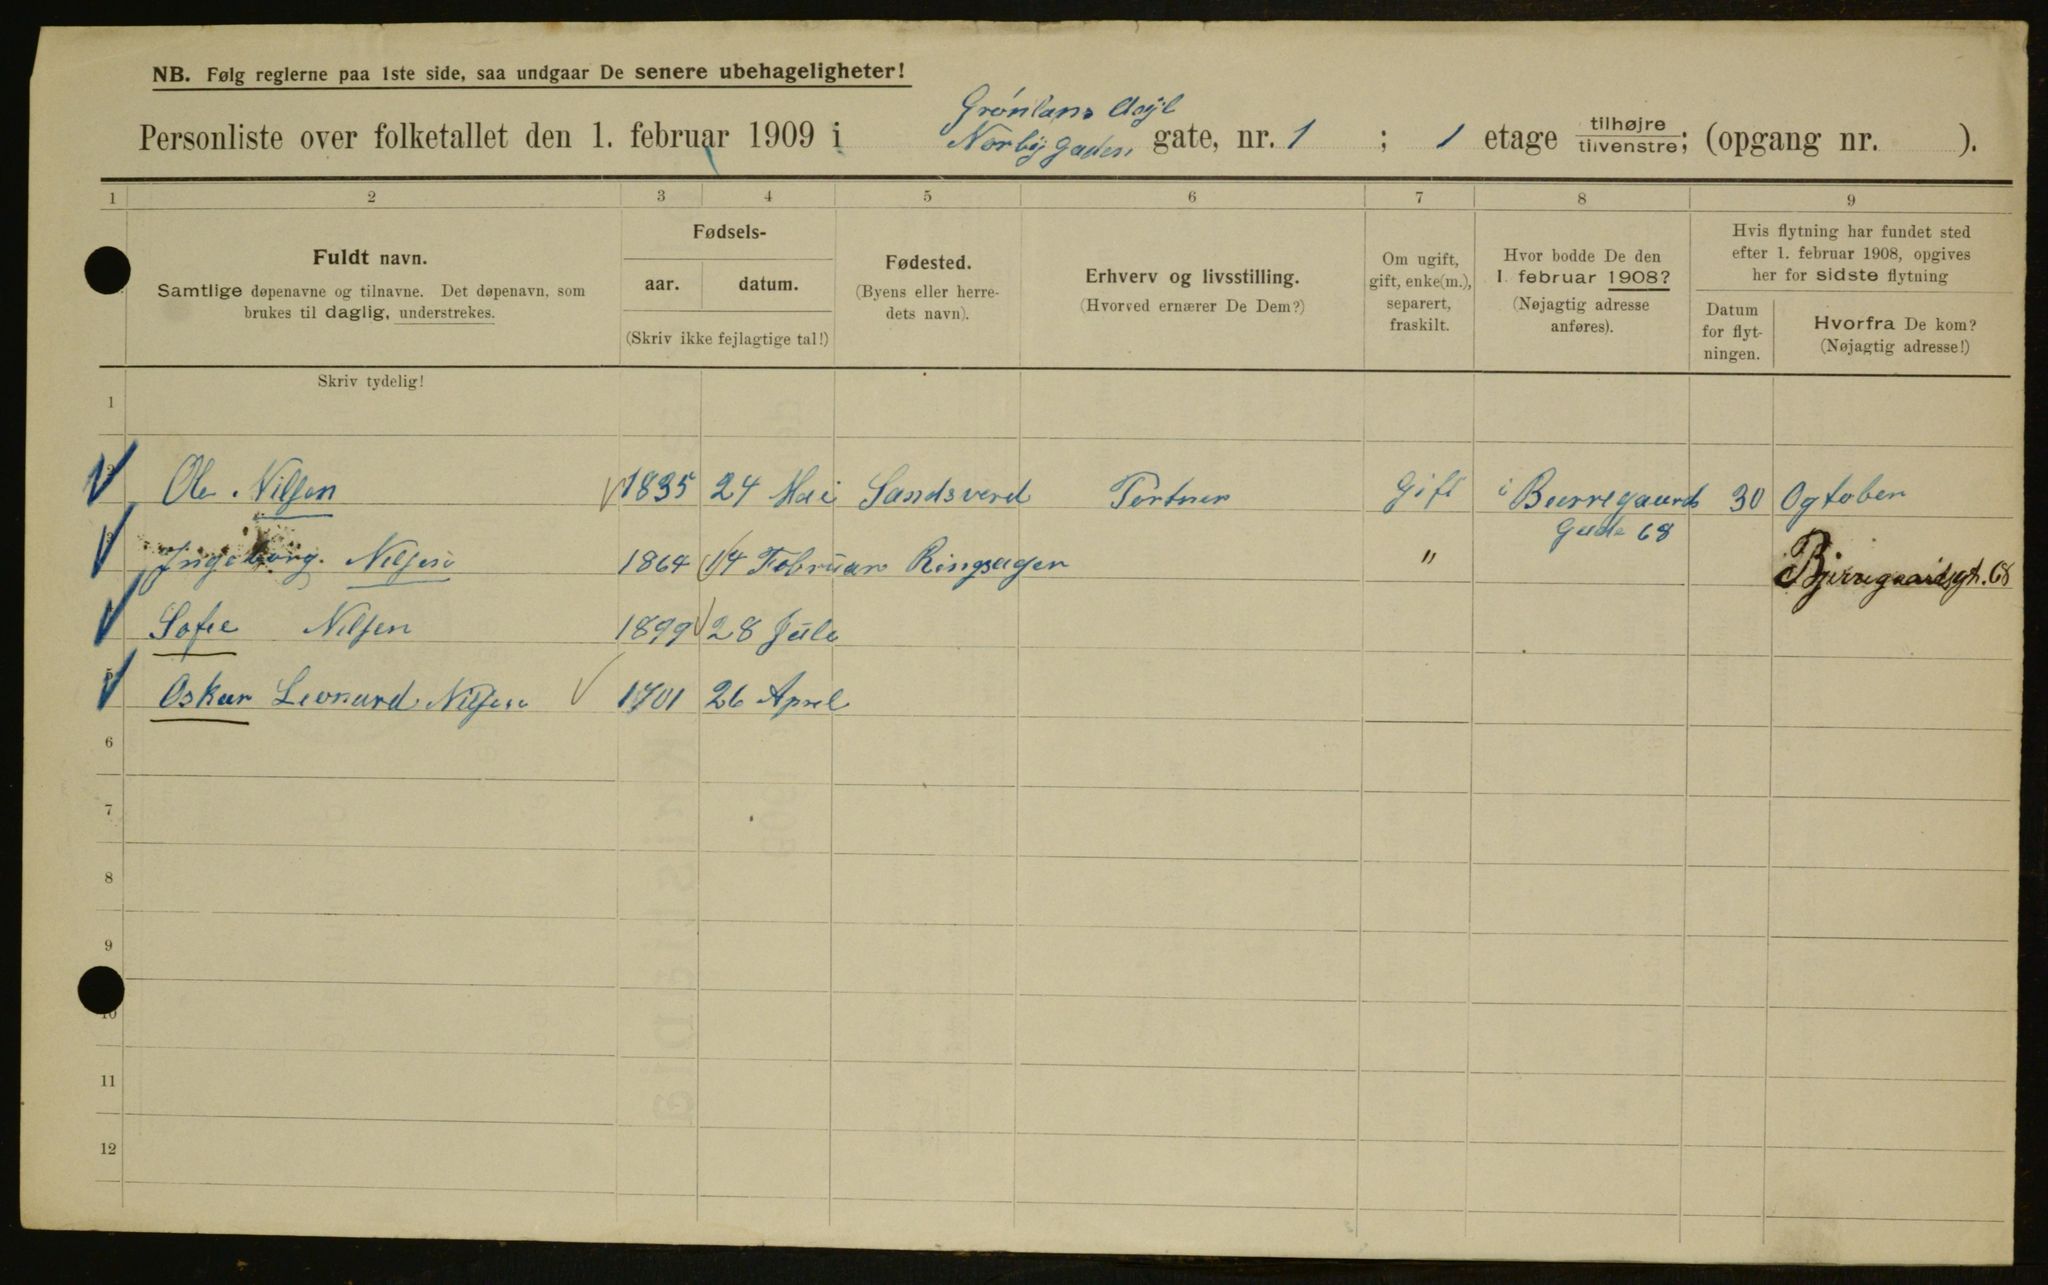 NB. Følg reglerne paa 1ste side, saa undgaar De senere ubehageligheter!
Grønlans Asyl
Personliste over folketallet den 1. februar 1909 i Norby Gaden gate, nr. 1 ; 1 etage tilhøjre tilvenstre; (opgang nr. ).
1 2 3 4 5 6 7 8 9
Fuldt navn.
Samtlige døpenavne og tilnavne. Det døpenavn, som
brukes til daglig, understrekes.
Skriv tydelig!
Fødsels-
aar. datum.
(Skriv ikke fejlagtige tal!)
Fødested.
(Byens eller herre-
dets navn).
Erhverv og livsstilling.
(Hvorved ernærer De Dem?)
Om ugift,
gift, enke(m.),
separert,
fraskilt.
Hvor bodde De den
1. februar 1908?
(Nøjagtig adresse
anføres).
Hvis flytning har fundet sted
efter 1. februar 1908, opgives
her for sidste flytning
Datum
for flyt-
ningen.
Hvorfra De kom?
(Nøjagtig adresse!)
1
Ole Nilsen 1835 24 Mai Sandsverd Portner Gift i Bærregaards 30 Ogtober
Gade 68
Ingeborg Nilsen 1864 14 Februar Ringsager " Bjerregaardsgt. 68
Sofie Nilsen 1899 28 Juli
5 Oskar Leonard Nilsen 1901 26 April
6
7
8
9
10
11
12